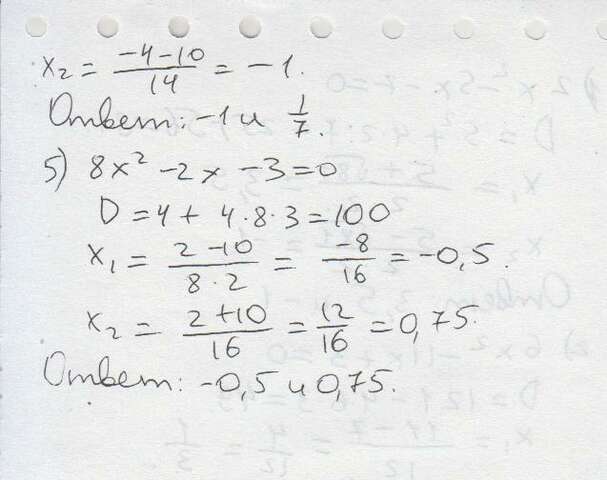 x₂ = (-4-10)/14 = -1.
Ответ: -1 и 1/7.
5) 8x² - 2x - 3 = 0
D = 4 + 4·8·3 = 100
x₁ = (2-10)/(8·2) = -8/16 = -0,5.
x₂ = (2+10)/16 = 12/16 = 0,75.
Ответ: -0,5 и 0,75.